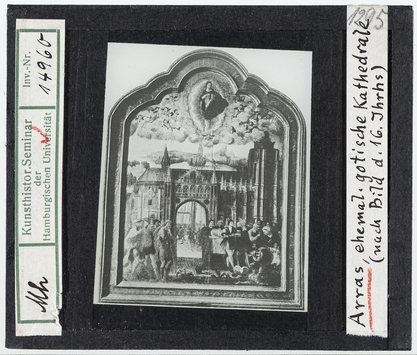 Kunsthistor. Seminar
der
Hamburgischen Universität
Inv.-Nr.
14960
Mh
1295
Arras, ehemal. gotische Kathedrale
(nach Bild d. 16. Jhrhs)